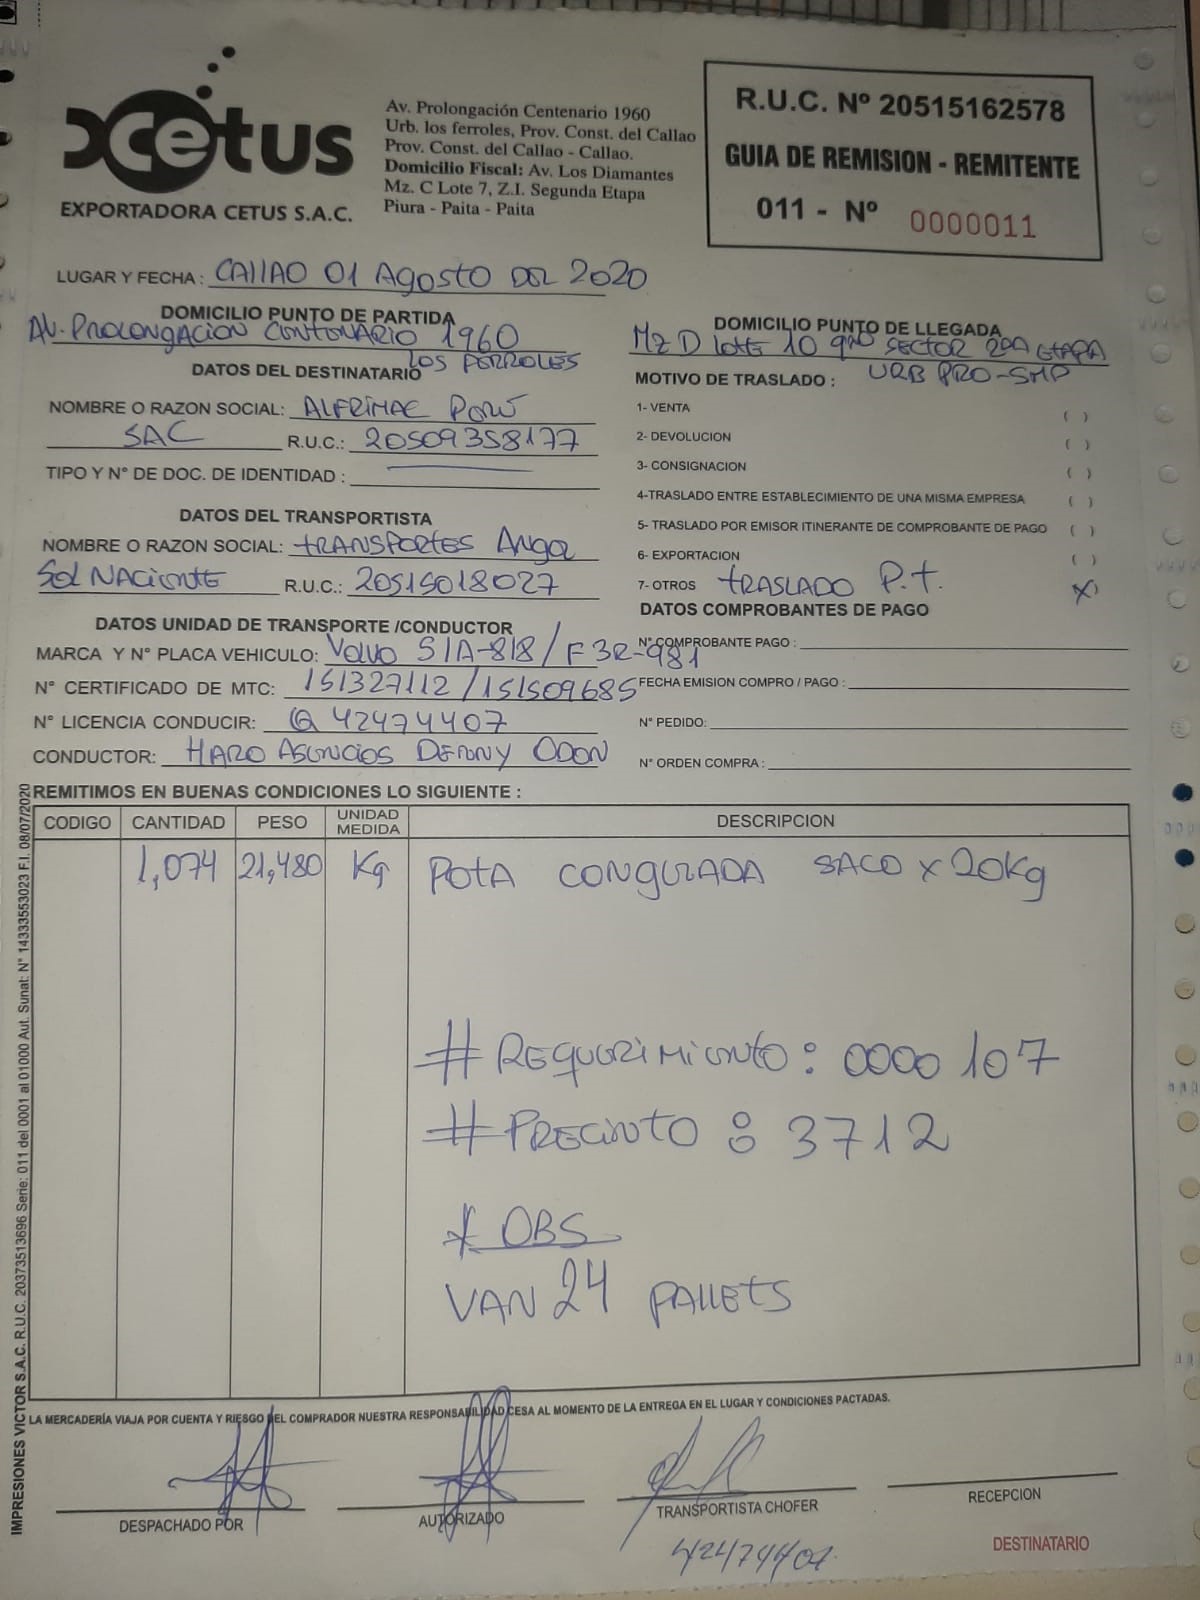 Cetus
EXPORTADORA CETUS S.A.C.
Av. Prolongación Centenario 1960
Urb. los ferroles, Prov. Const. del Callao
Prov. Const. del Callao - Callao.
Domicilio Fiscal: Av. Los Diamantes
Mz. C Lote 7, Z.I. Segunda Etapa
Piura - Paita - Paita
R.U.C. Nº 20515162578
GUIA DE REMISION - REMITENTE
011 - Nº 0000011
LUGAR Y FECHA : CALLAO 01 Agosto DEL 2020
DOMICILIO PUNTO DE PARTIDA
AV. PROLONGACION CENTENARIO 1960
LOS FERROLES
DATOS DEL DESTINATARIO
NOMBRE O RAZON SOCIAL: ALFRIMAC PERÚ
SAC R.U.C.: 20509358177
TIPO Y N° DE DOC. DE IDENTIDAD :
DATOS DEL TRANSPORTISTA
NOMBRE O RAZON SOCIAL: TRANSPORTES Angel
Sol NACIENTE R.U.C.: 20515018027
DATOS UNIDAD DE TRANSPORTE /CONDUCTOR
MARCA Y N° PLACA VEHICULO: VOLVO S1A-818/F3R-981
N° CERTIFICADO DE MTC: 151327112/151509685
N° LICENCIA CONDUCIR: Q 42474407
CONDUCTOR: HARO ASENCIOS DENNY ODON
DOMICILIO PUNTO DE LLEGADA
MZ D LOTE 10 SECTOR 2DA ETAPA
URB PRO-SMP
MOTIVO DE TRASLADO :
1- VENTA ( )
2- DEVOLUCION ( )
3- CONSIGNACION ( )
4-TRASLADO ENTRE ESTABLECIMIENTO DE UNA MISMA EMPRESA ( )
5- TRASLADO POR EMISOR ITINERANTE DE COMPROBANTE DE PAGO ( )
6- EXPORTACION ( )
7- OTROS TRASLADO P.T. X
DATOS COMPROBANTES DE PAGO
N° COMPROBANTE PAGO :
FECHA EMISION COMPRO / PAGO :
N° PEDIDO:
N° ORDEN COMPRA :
REMITIMOS EN BUENAS CONDICIONES LO SIGUIENTE :
CODIGO CANTIDAD PESO UNIDAD MEDIDA DESCRIPCION
1,074 21,480 Kg POTA CONGELADA SACO x 20Kg
# REQUERIMIENTO : 0000107
# PRECINTO : 3712
* OBS
VAN 24 PALLETS
LA MERCADERÍA VIAJA POR CUENTA Y RIESGO DEL COMPRADOR NUESTRA RESPONSABILIDAD CESA AL MOMENTO DE LA ENTREGA EN EL LUGAR Y CONDICIONES PACTADAS.
DESPACHADO POR
AUTORIZADO
TRANSPORTISTA CHOFER
42474407
RECEPCION
DESTINATARIO
IMPRESIONES VICTOR S.A.C. R.U.C. 20373513696 Serie: 011 del 0001 al 01000 Aut. Sunat: N° 14333553023 F.I. 08/07/2020